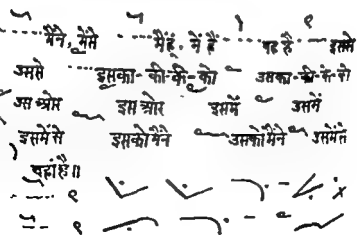 मैंने, मैंसे मैंहूं, में हैं यह है इससे
उससे इसका-की-के-को उसका-की-के-को
उस ओर इस ओर इसमें उसमें
इसमें से इसको मैंने उसको मैंने उसमें से
वहां है॥